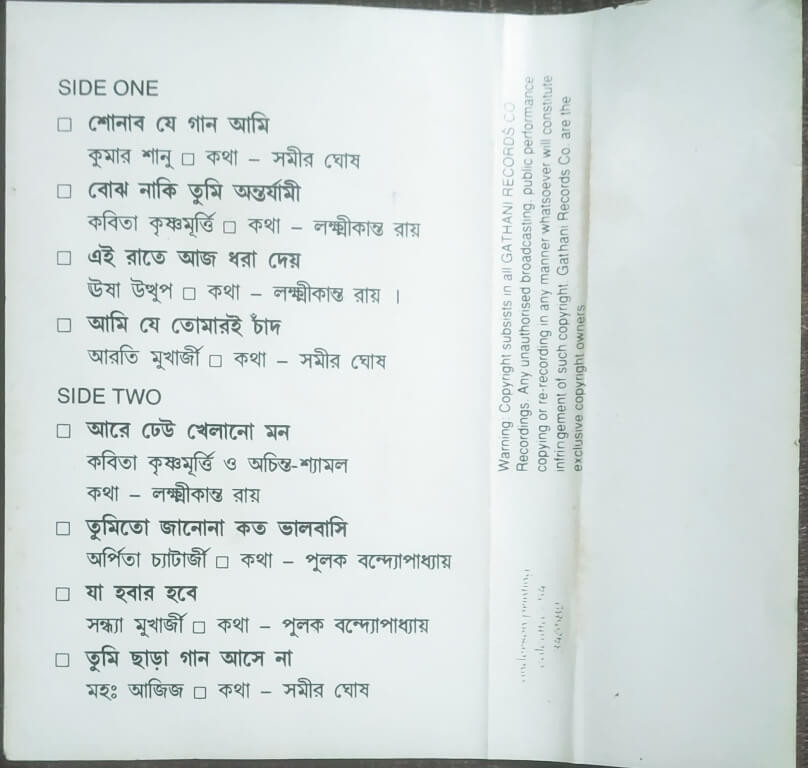 SIDE ONE
□ শোনাব যে গান আমি
কুমার শানু □ কথা – সমীর ঘোষ
□ বোঝ নাকি তুমি অন্তর্যামী
কবিতা কৃষ্ণমূর্ত্তি □ কথা – লক্ষ্মীকান্ত রায়
□ এই রাতে আজ ধরা দেয়
ঊষা উত্থুপ □ কথা – লক্ষ্মীকান্ত রায় ।
□ আমি যে তোমারই চাঁদ
আরতি মুখার্জী □ কথা – সমীর ঘোষ
SIDE TWO
□ আরে ঢেউ খেলানো মন
কবিতা কৃষ্ণমূর্ত্তি ও অচিন্ত-শ্যামল
কথা – লক্ষ্মীকান্ত রায়
□ তুমিতো জানোনা কত ভালবাসি
অর্পিতা চ্যাটার্জী □ কথা – পুলক বন্দ্যোপাধ্যায়
□ যা হবার হবে
সন্ধ্যা মুখার্জী □ কথা – পুলক বন্দ্যোপাধ্যায়
□ তুমি ছাড়া গান আসে না
মহঃ আজিজ □ কথা – সমীর ঘোষ
Warning: Copyright subsists in all GATHANI RECORDS CO
Recordings. Any unauthorised broadcasting, public performance
copying or re-recording in any manner whatsoever will constitute
infringement of such copyright. Gathani Records Co. are the
exclusive copyright owners